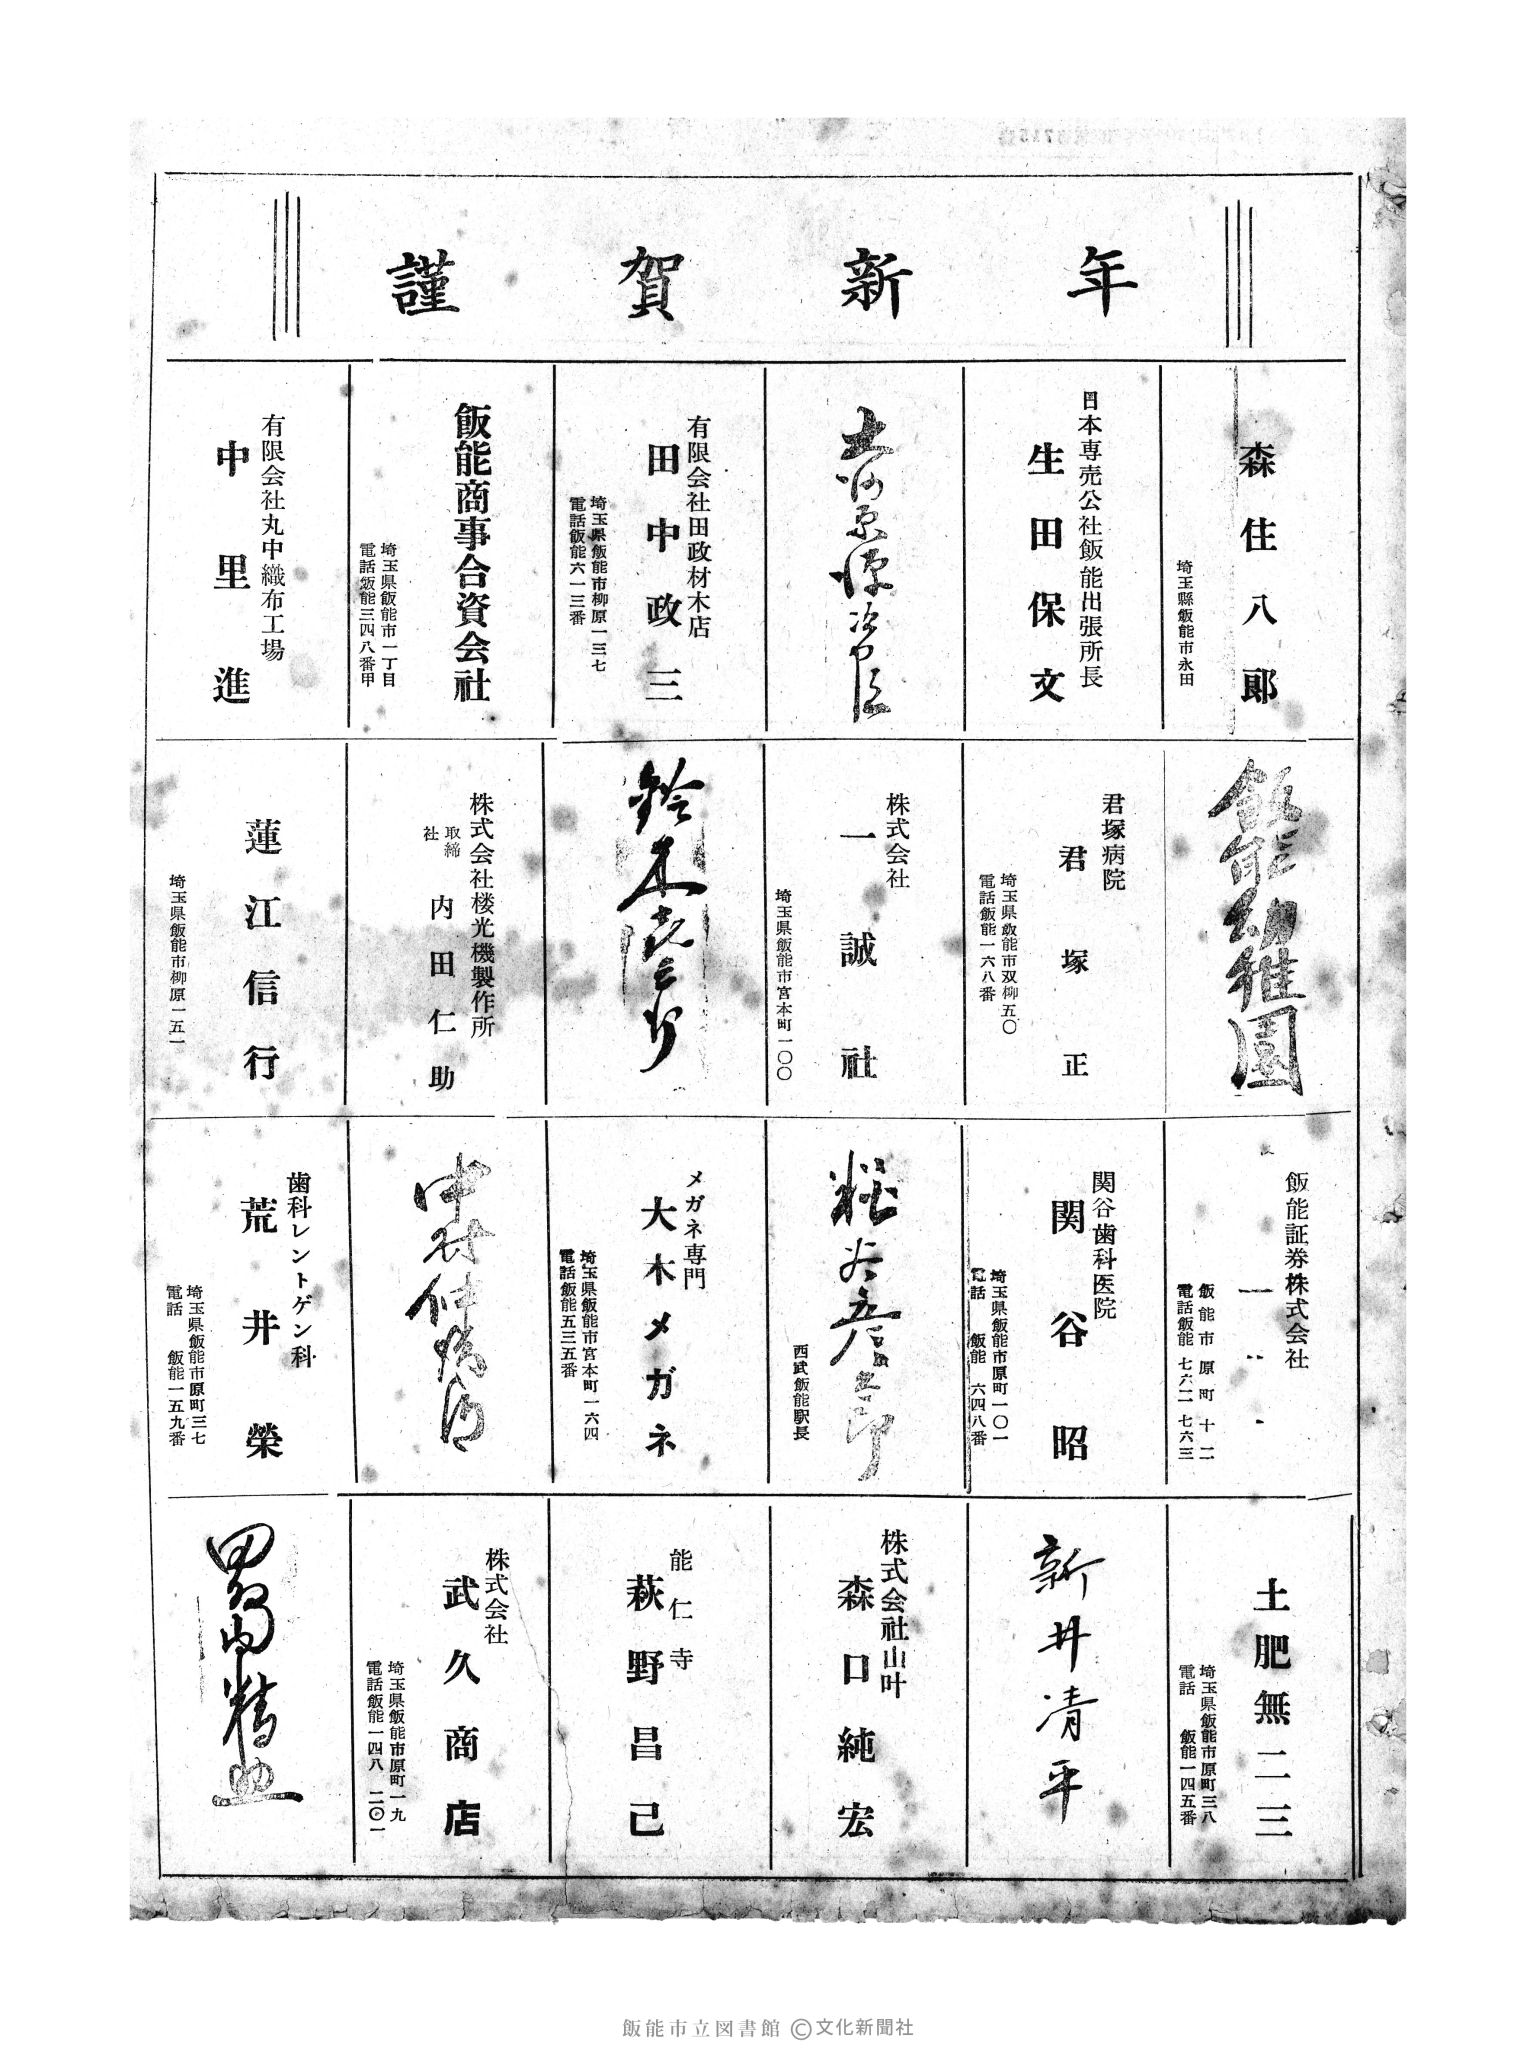 謹賀新年
森住八郎
埼玉縣飯能市永田
日本専売公社飯能出張所長
生田保文
有限会社田政材木店
田中政三
埼玉県飯能市柳原一三七
電話飯能六一三番
飯能商事合資会社
埼玉県飯能市一丁目
電話飯能三四八番甲
有限会社丸中織布工場
中里進
飯能幼稚園
君塚病院
君塚正
埼玉県飯能市双柳五〇
電話飯能一六八番
株式会社
一誠社
埼玉県飯能市宮本町一〇〇
株式会社楼光機製作所
取締
社
内田仁助
蓮江信行
埼玉県飯能市柳原一五一
飯能証券株式会社
飯能市原町十二
電話飯能七六二 七六三
関谷歯科医院
関谷昭
埼玉県飯能市原町一〇一
電話 飯能 六四八番
西武飯能駅長
メガネ専門
大木メガネ
埼玉県飯能市宮本町一六四
電話飯能五三五番
歯科レントゲン科
荒井榮
埼玉県飯能市原町三七
電話 飯能一五九番
土肥無二三
埼玉県飯能市原町三八
電話 飯能一四五番
新井清平
株式会社山叶
森口純宏
能仁寺
萩野昌己
株式会社
武久商店
埼玉県飯能市原町一九
電話飯能一四八 二〇一
飯能市立図書館 ©文化新聞社